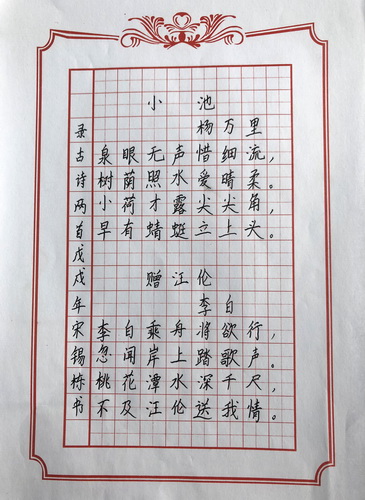 小池
杨万里
泉眼无声惜细流，
树荫照水爱晴柔。
小荷才露尖尖角，
早有蜻蜓立上头。
赠汪伦
李白
李白乘舟将欲行，
忽闻岸上踏歌声。
桃花潭水深千尺，
不及汪伦送我情。
录古诗两首戊戌年宋锡栋书